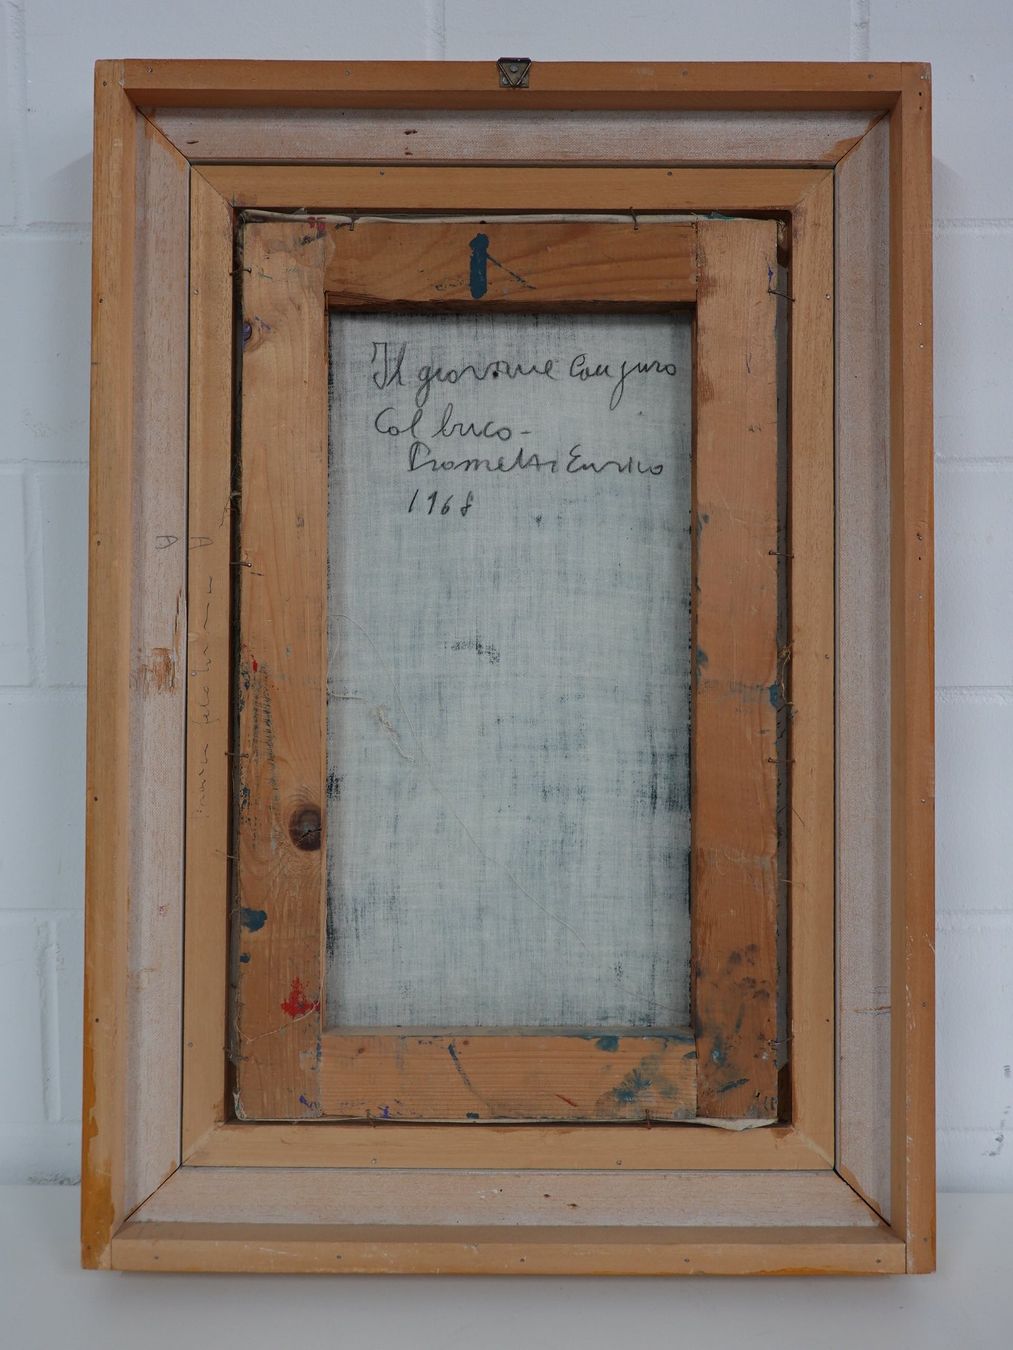 Il giovane Canguro
Col buco-
Prometti Enrico
1968